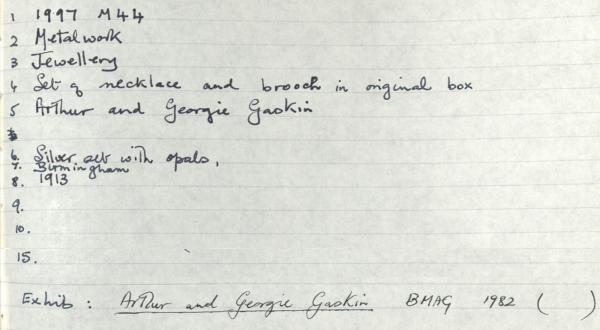 1 1997 M44
2 Metalwork
3 Jewellery
4 Set of necklace and brooch in original box
5 Arthur and Georgie Gaskin
6. Silver set with opals,
7. Birmingham
8. 1913
9.
10.
15.
Exhib : Arthur and Georgie Gaskin BMAG 1982 ( )